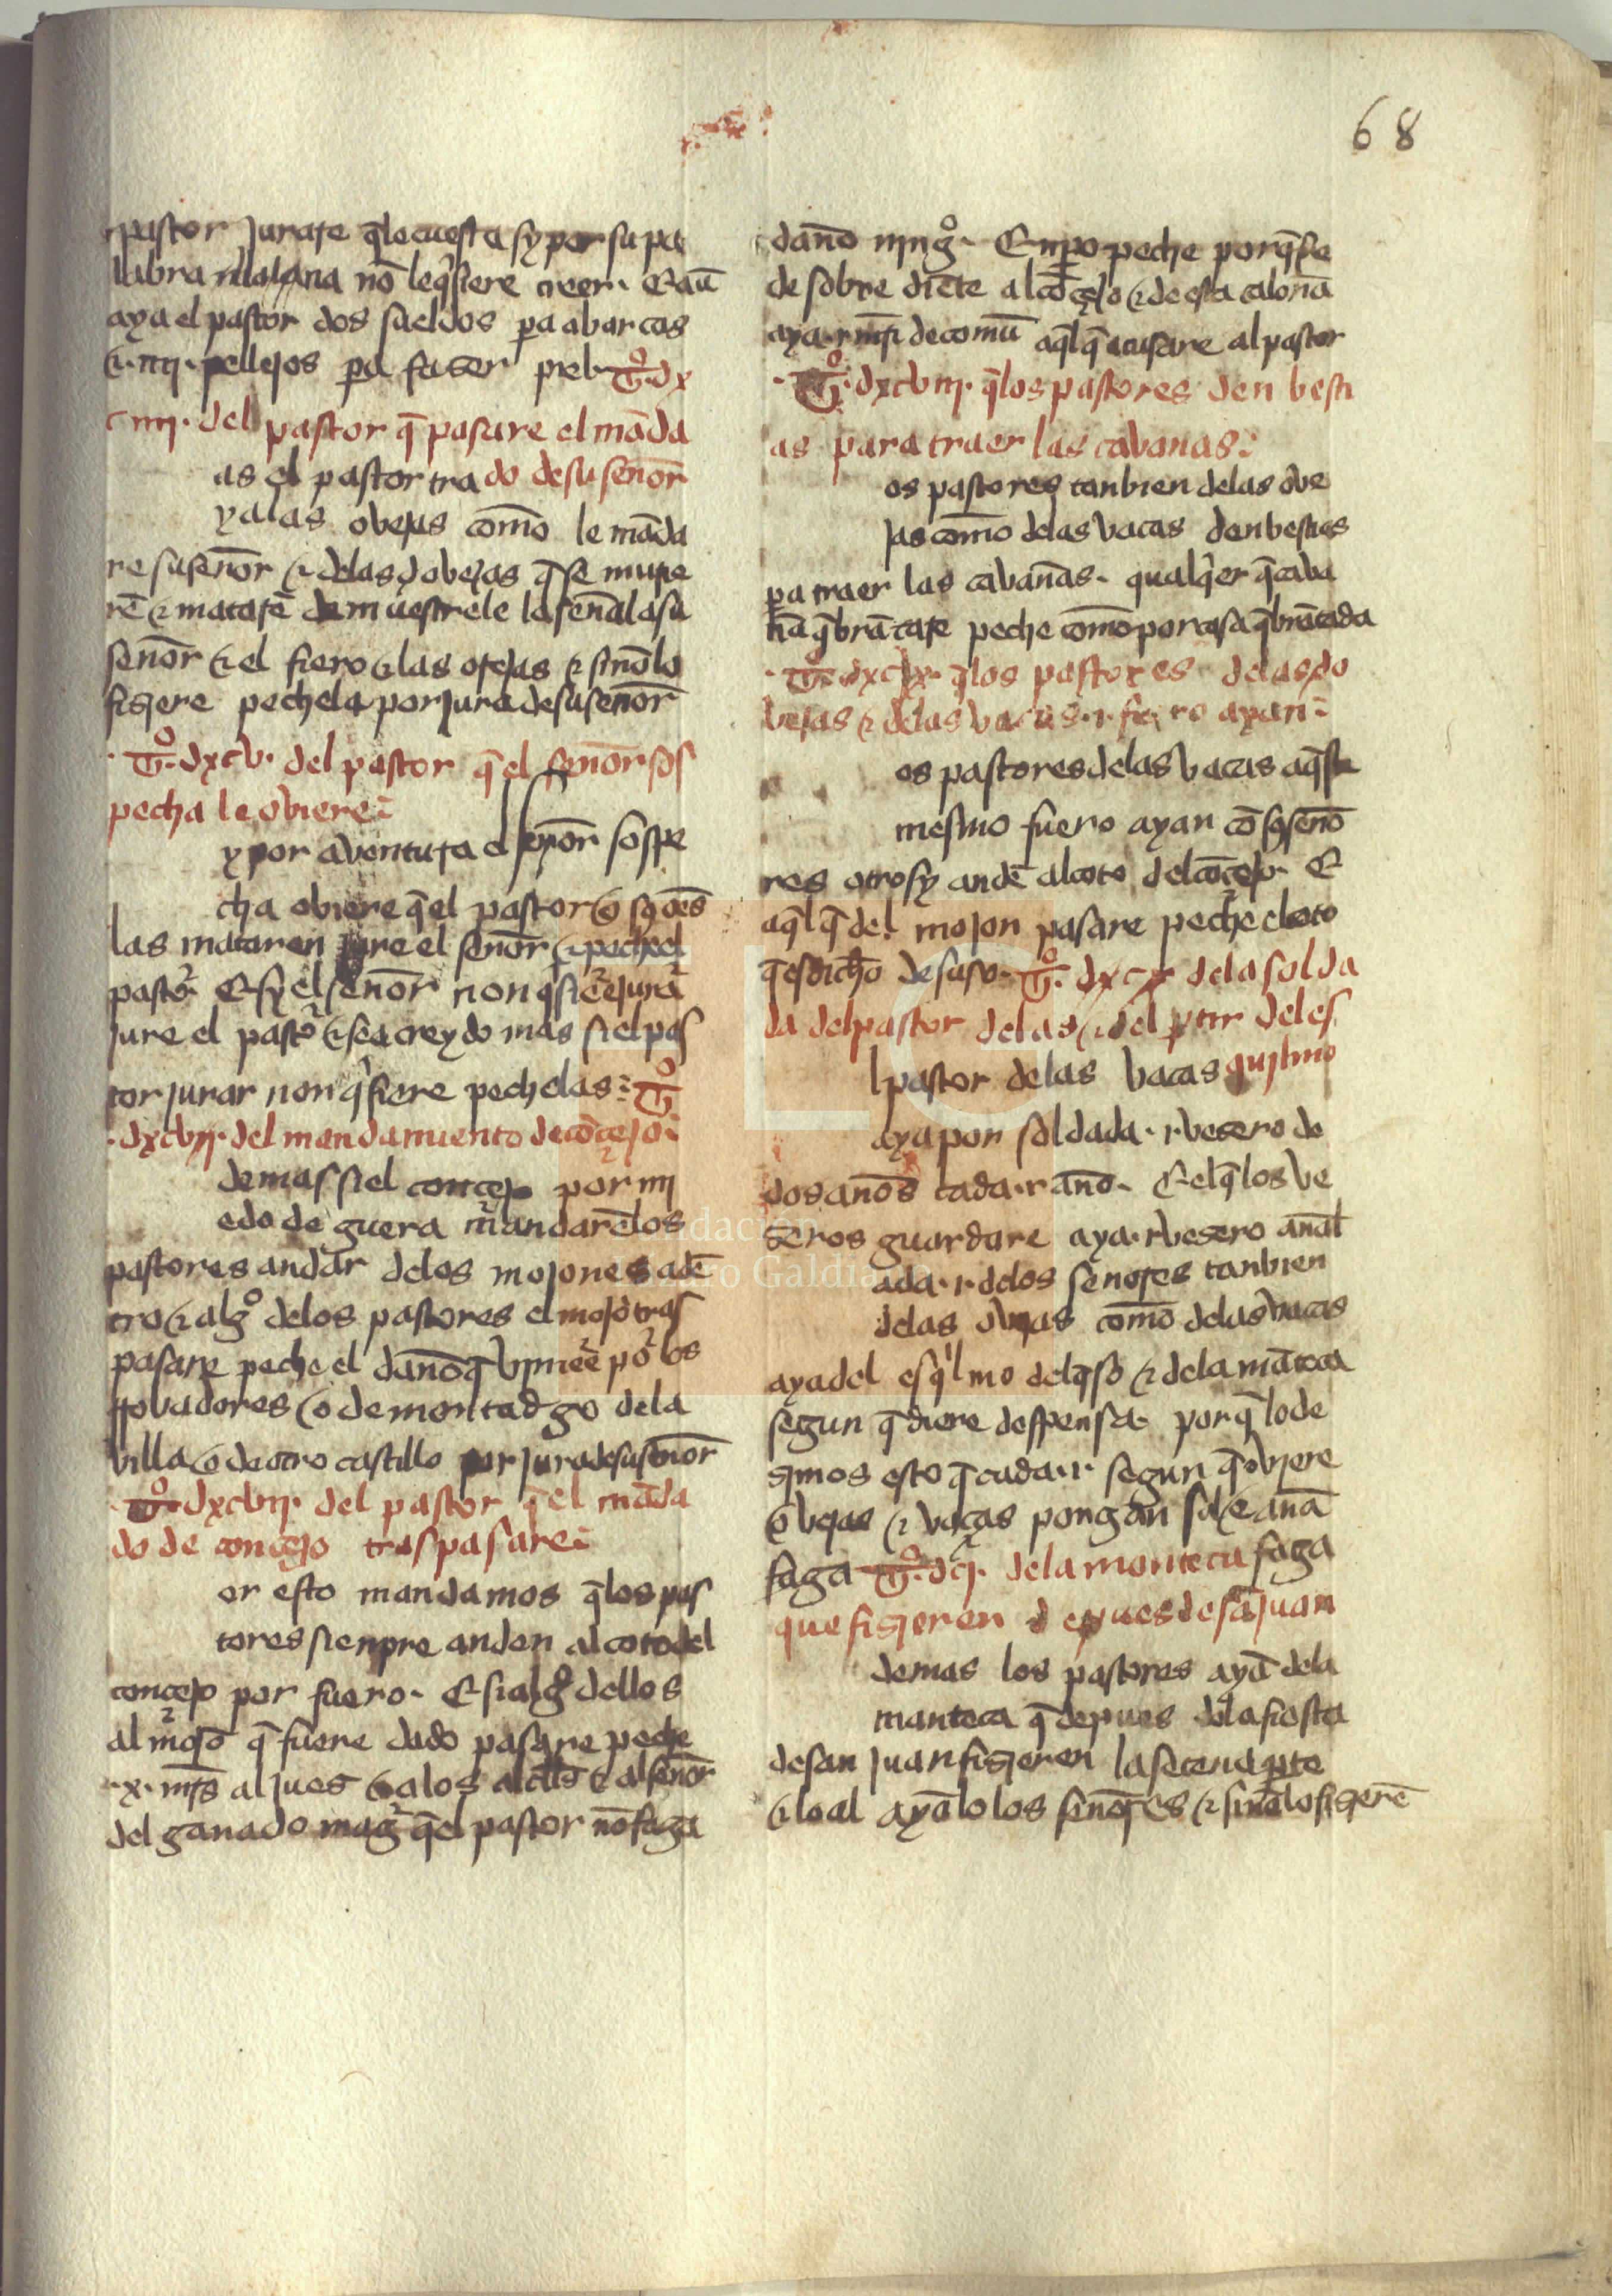 68
pastor jurare q̄ le cuesta sy por su pa
labra no̅ le q̄siere creer. E au̅
aya el pastor dos sueldos pa abarcas
⁊ .iiij. pellejos pa faser piel. T̊. dx
c iiij. del pastor q̄ pasare el ma̅da
do de su señor
as el pastor tra
ya las ovejas como le ma̅da
re su señor ⁊ delas ovejas q̄ se murie
re̅ ⁊ matare̅ demuestrele la señal a su
señor ⁊ el fiero ⁊ las orejas ⁊ si no̅ lo
fisiere pechela por jura de su señor
T̊. dxcv. del pastor q̄ el señor sos
pecha le obiere
y por aventura el señor sospe
cha obiere q̄ el pastor o sus oe̅s
las mataren jure el señor ⁊ peche el
pastor E sy el señor non q̄siere jurar
jure el pastor ⁊ sea creydo mas si el pas
tor jurar non q̄siere pechelas T̊
.dxcvj. del mandamiento de co̅cejo
demas si el concejo por mi
edo de guera mandare̅ los
pastores andar delos mojones ade̅
tro ⁊ algo̊ delos pastores el mojo̅ tras
pasare peche el daño q̄ viniere por los
robadores o de montadgo dela
villa o de otro castillo por jura de su señor
T̊. dxcvij. del pastor q̄ el ma̅da
do de concejo traspasare
or esto mandamos q̄ los pas
tores sienpre anden al coto del
concejo por fuero. E si algo̊ dellos
al mojo̅ q̄ fuere dado pasare peche
.x. mr̅s al jues ⁊ a los alcll̅s ⁊ al señor
del ganado mager q̄ el pastor no̅ faga
daño ning̊. Enpo peche porq̄ fue
desobredie̅te al co̅cejo ⁊ de esta caloña
aya .i. mr̅i de comu̅ aq̄l q̄ acusare al pastor
T̊. dxcviij. q̄ los pastores den besti
as para traer las cabanas
os pastores tanbien delas ove
jas como delas vacas den bestias
pa traer las cabanas. qualq̄er q̄ caba
ña q̄bra̅tare peche como por casa q̄bra̅tada
T̊. dxcix. q̄ los pastores delas o
vejas ⁊ delas vacas .i. fuero ayan
os pastores delas vacas aq̄ste
mesmo fuero ayan co̅ sus seño
res otrosy ande̅ al coto del co̅cejo. E
aq̄l q̄ del mojon pasare peche el coto
q̄ es dicho de suso. T̊. dxcx dela solda
da del pastor delas ⁊ del partir del es
quilmo
l pastor delas vacas
aya por soldada .i. vesero de
dos años cada .i. año. E el q̄ los ve
seros guardare aya .i. vesero añal
ada .i. delos senores tanbien
delas ovejas como delas vacas
aya del esq̄lmo del q̄so ⁊ dela ma̅teca
segun q̄ diere despensa. porq̄ lo de
simos esto q̄ cada .i. segun q̄ oviere
ovejas ⁊ vacas pongan sal ⁊ ana
faga T̊. dcj. dela manteca faga
que fisieren depues de sa̅ juan
demas los pastores aya̅ dela
manteca q̄ depues dela fiesta
de san juan fisieren la setena pte
⁊ lo al aya̅lo los señores ⁊ si no̅ lo fisiere̅